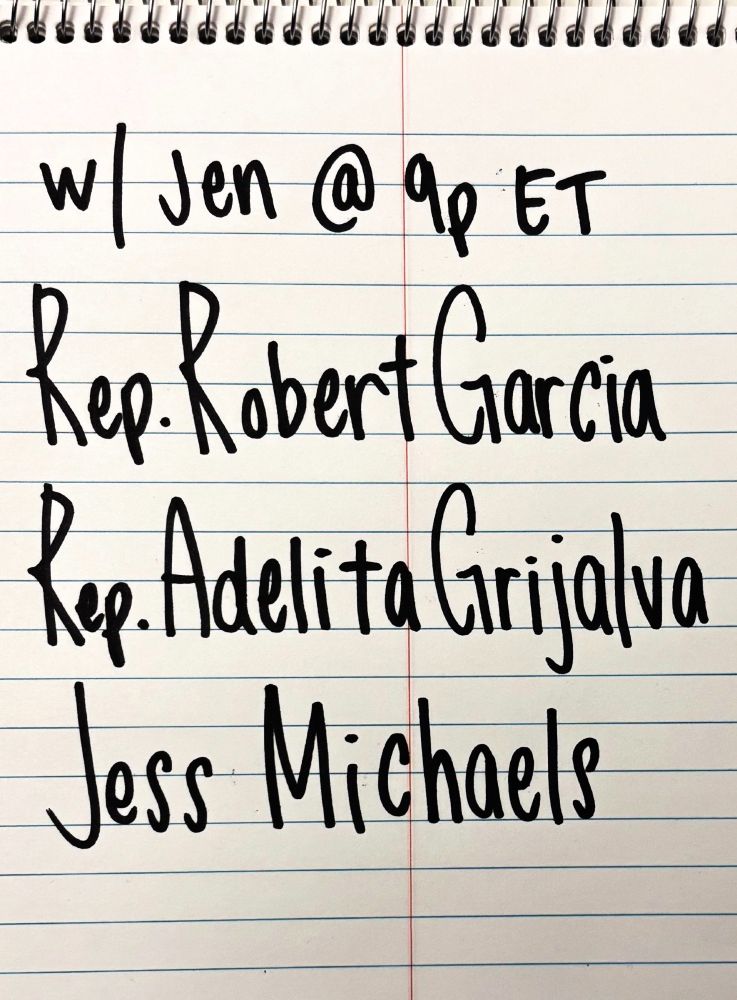 w/ Jen @ 9p ET
Rep. Robert Garcia
Rep. Adelita Grijalva
Jess Michaels